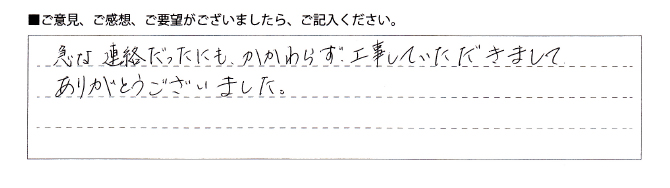 ■ご意見、ご感想、ご要望がございましたら、ご記入ください。
急な連絡だったにも、かかわらず、工事していただきまして
ありがとうございました。